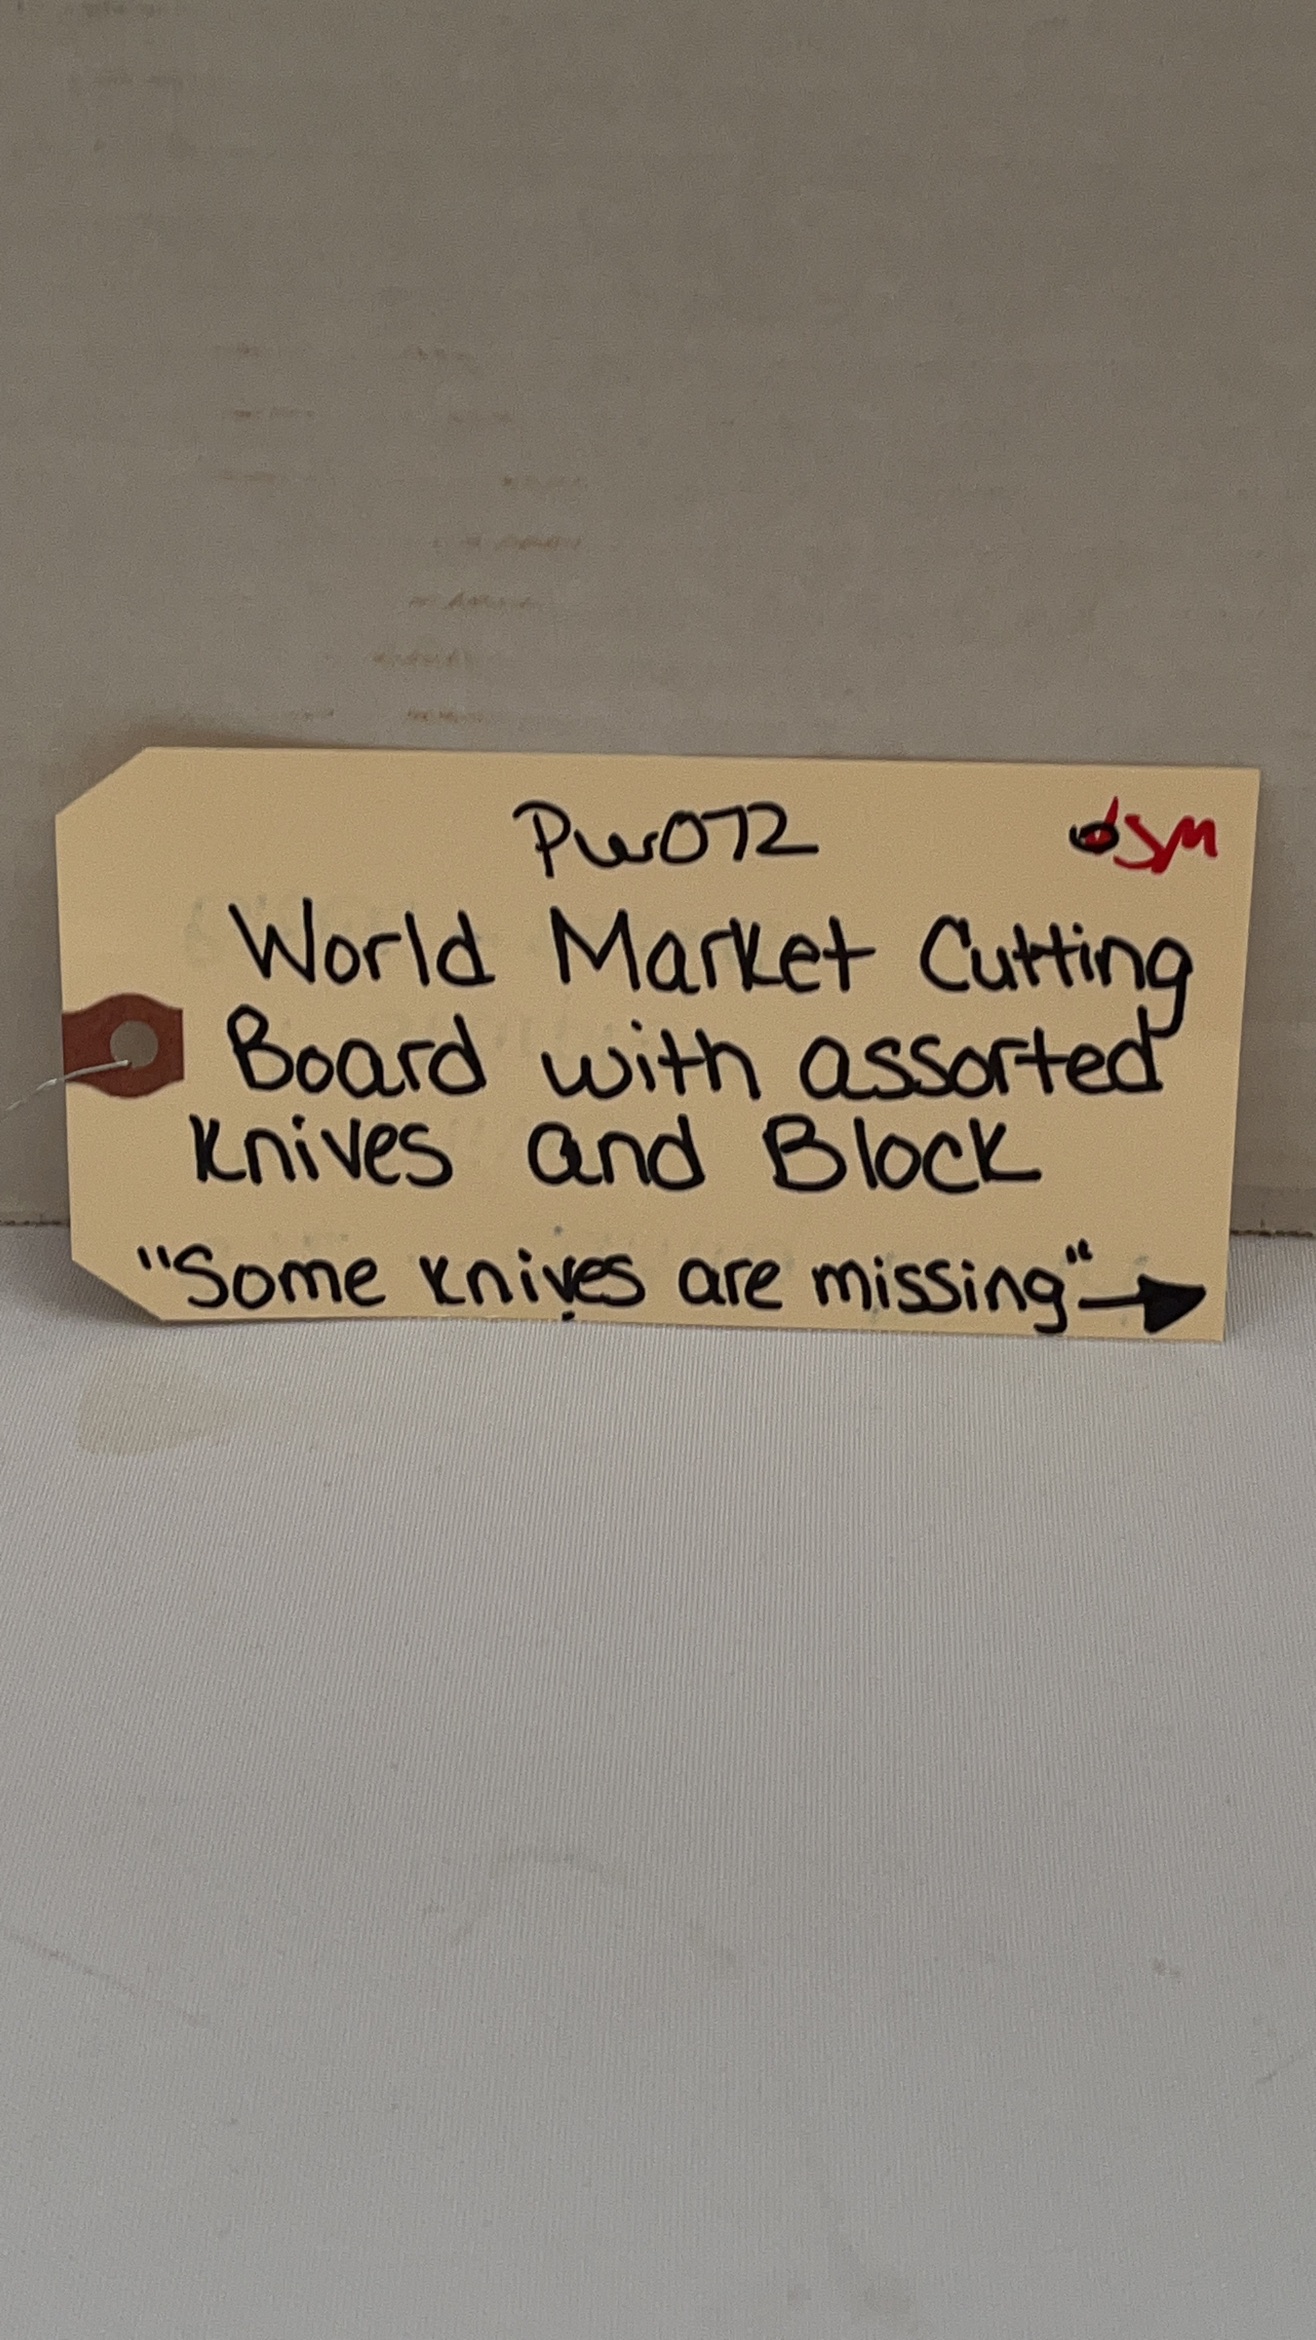 World Market Cutting
Board with assorted
Knives and Block
"Some knives are missing"